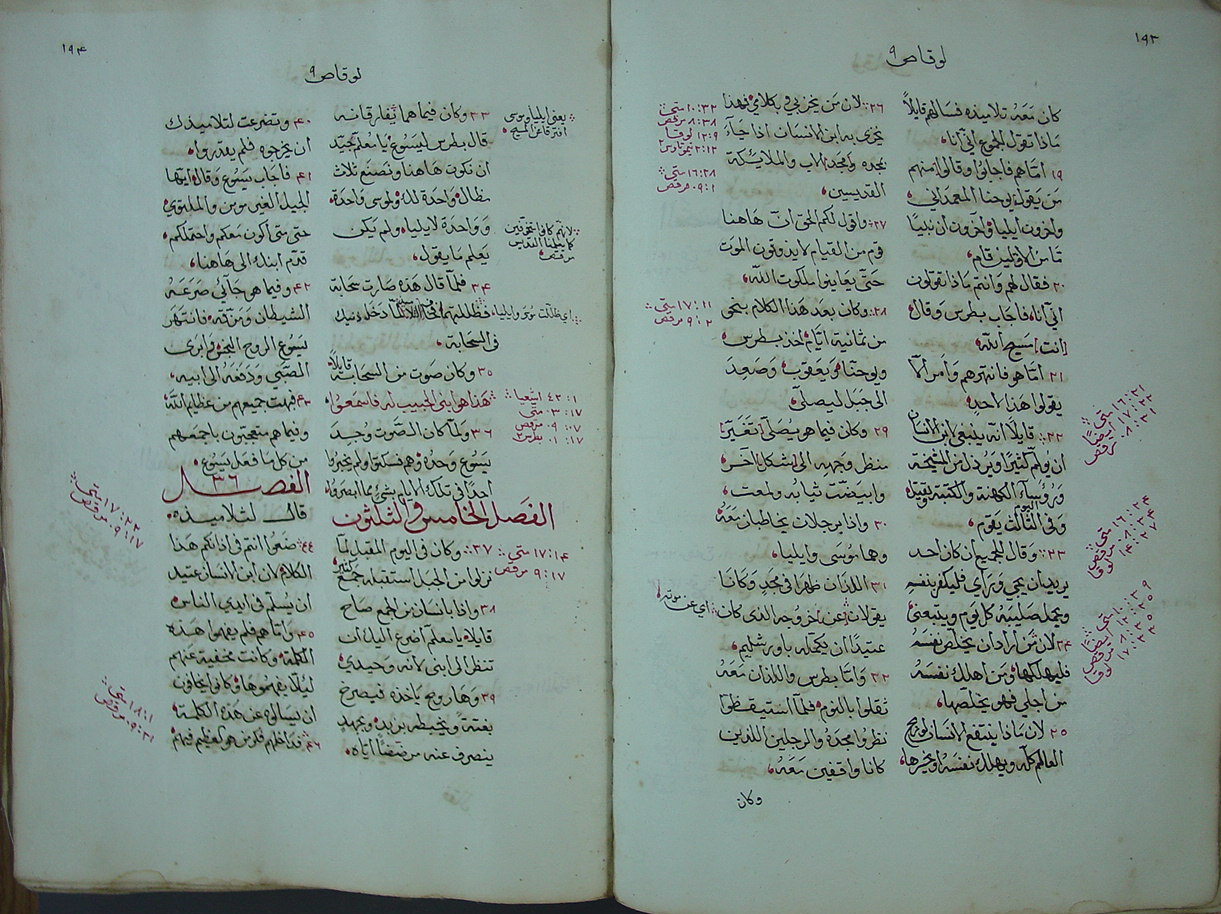 ١٩٣
لوقا ص ٩
كان معه تلاميذه فسالهم قايلاً
ماذا تقول الجموع اني انا
١٩ امّا هم فاجابوا وقالوا منهم
من يقول يوحنا المعمداني
واخرون ايليا واخرون ان نبيّا
من الاولين قام
٢٠ فقال لهم وانتم ماذا تقولون
اني انا فاجاب بطرس وقال
انت مسيح الله
٢١ امّا هو فانتهرهم وامر الّا
يقولوا هذا لاحدٍ
٢٢ قايلاً انه ينبغي لابن الانسان
ان يولم كثيرًا ويرذل من المشيخة
وروساء الكهنة والكتبة ويقتل
وفي اليوم الثالث يقوم
٢٣ وقال للجميع ان كان احد
يريد ان يجي وراي فليكفر بنفسه
ويحمل صليبه كل يوم ويتبعني
٢٤ لان من اراد ان يخلص نفسه
فليهلكها ومن اهلك نفسه
من اجلي فهو يخلصها
٢٥ لان ماذا ينتفع الانسان لو ربح
العالم كله ويهلك نفسه او يخسرها
١٦:٢١ متي
١٧:٢٢ ايضًا
٨:٣١ مرقص
١٦:٢٤ متي
٨:٣٤ مرقص
١٤:٢٧ لوقا
١٠:٣٩ متي
١٦:٢٥ ايضًا
٨:٣٥ مرقص
١٧:٣٣ لوقا
٢٦ لان من يخزي بي وبكلامي فهذا
يخزى به ابن الانسان اذا جاء
بمجده ومجد الاب والملايكة
القديسين
٢٧ واقول لكم الحق ان هاهنا
قوم من القيام لا يذوقون الموت
حتى يعاينوا ملكوت الله
٢٨ وكان بعد هذا الكلام بنحو
من ثمانية ايّام اخذ بطرس
ويوحنا ويعقوب وصعد
الى جبل ليصلي
٢٩ وكان فيما هو يصلي تغيّر
منظر وجهه الى شكل اخر
وابيضت ثيابه ولمعت
٣٠ واذا برجلان يخاطبان معه
وهما موسى وايليا
٣١ اللذان ظهرا في مجدٍ وكانا
يقولان عن خروجه الذي كان
عتيدًا ان يكمله باورشليم
٣٢ وامّا بطرس واللذان معه
ثقلوا بالنوم فلما استيقظوا
نظروا مجده والرجلين اللذين
كانا واقفين معه
وكان
١٠:٣٢ متي
٨:٣٨ مرقص
١٢:٩ لوقا
٢:١٢ تيموتاوس ٢
١٦:٢٨ متي
٩:١ مرقص
١٧:١١ متي
٩:٢ مرقص
اي عن موته
١٩٤
لوقا ص ٩
يعني ايليا وموسى
افترقا عن المسيح
٣٣ وكان فيما هما يفارقانه
قال بطرس ليسوع يا معلم لجيّد
ان نكون هاهنا ونصنع ثلاث
مظال واحدة لك ولموسى واحدة
وواحدة لايليا ولم يكن
يعلم ما يقول
٣٤ فلما قال هذه صارت سحابة
فظللتهم
في السحابة
٣٥ وكان صوت من السحابة قايلاً
هذا هو ابني الحبيب له فاسمعوا
٣٦ ولما كان الصوت وجد
يسوع وحده وهم سكتوا ولم يخبروا
احدًا في تلك الايام بشي مما ابصروه
الفصل الخامس والثلثون
٣٧ وكان في اليوم المقبل لما
نزلوا من الجبل استقبله جمع كثير
٣٨ واذا بانسان من الجمع صاح
قايلا يا معلم اضرع اليك ان
تنظر الى ابني لانه وحيدي
٣٩ وها روح ياخذه فيصرخ
بغتةً ويخبطه بزبد وبجهد
ينصرف عنه مرضضا اياه
مرقص
اي ظللت موسى وايليا
٤٢:١ اشعيا
٣:١٧ متي
٩:٧ مرقص
١:١٧ بطرس ٢
١٧:١٤ متي
٩:١٧ مرقص
٤٠ وتضرعت لتلاميذك
ان يخرجوه فلم يقدروا
٤١ فاجاب يسوع وقال ايها
الجيل الغير مومن والملتوي
حتى متى اكون معكم واحتملكم
قدّم ابنك الى هاهنا
٤٢ وفيما هو جائي صرعه
الشيطان ومزقه فانتهر
يسوع الروح النجس وابرى
الصبّي ودفعه الى ابيه
٤٣ فبهت جميعهم من عظايم الله
وفيما هم متعجبون باجمعهم
من كل ما فعل يسوع
الفصل ٣٦
قال لتلاميذه
٤٤ ضعوا انتم في اذانكم هذا
الكلام لان ابن الانسان عتيد
ان يسلّم في ايدي الناس
٤٥ وامّا هم فلم يفهموا هذه
الكلمة وكانت مخفية عنهم
ليلا يفهموها وكانوا يخافون
ان يسالوه عن هذه الكلمة
٤٦ فداخلهم فكر من هو العظيم فيهم
١٧:٢٢ متي
٩:١٧ مرقص
١٨:١ متي
٩:٣١ مرقص